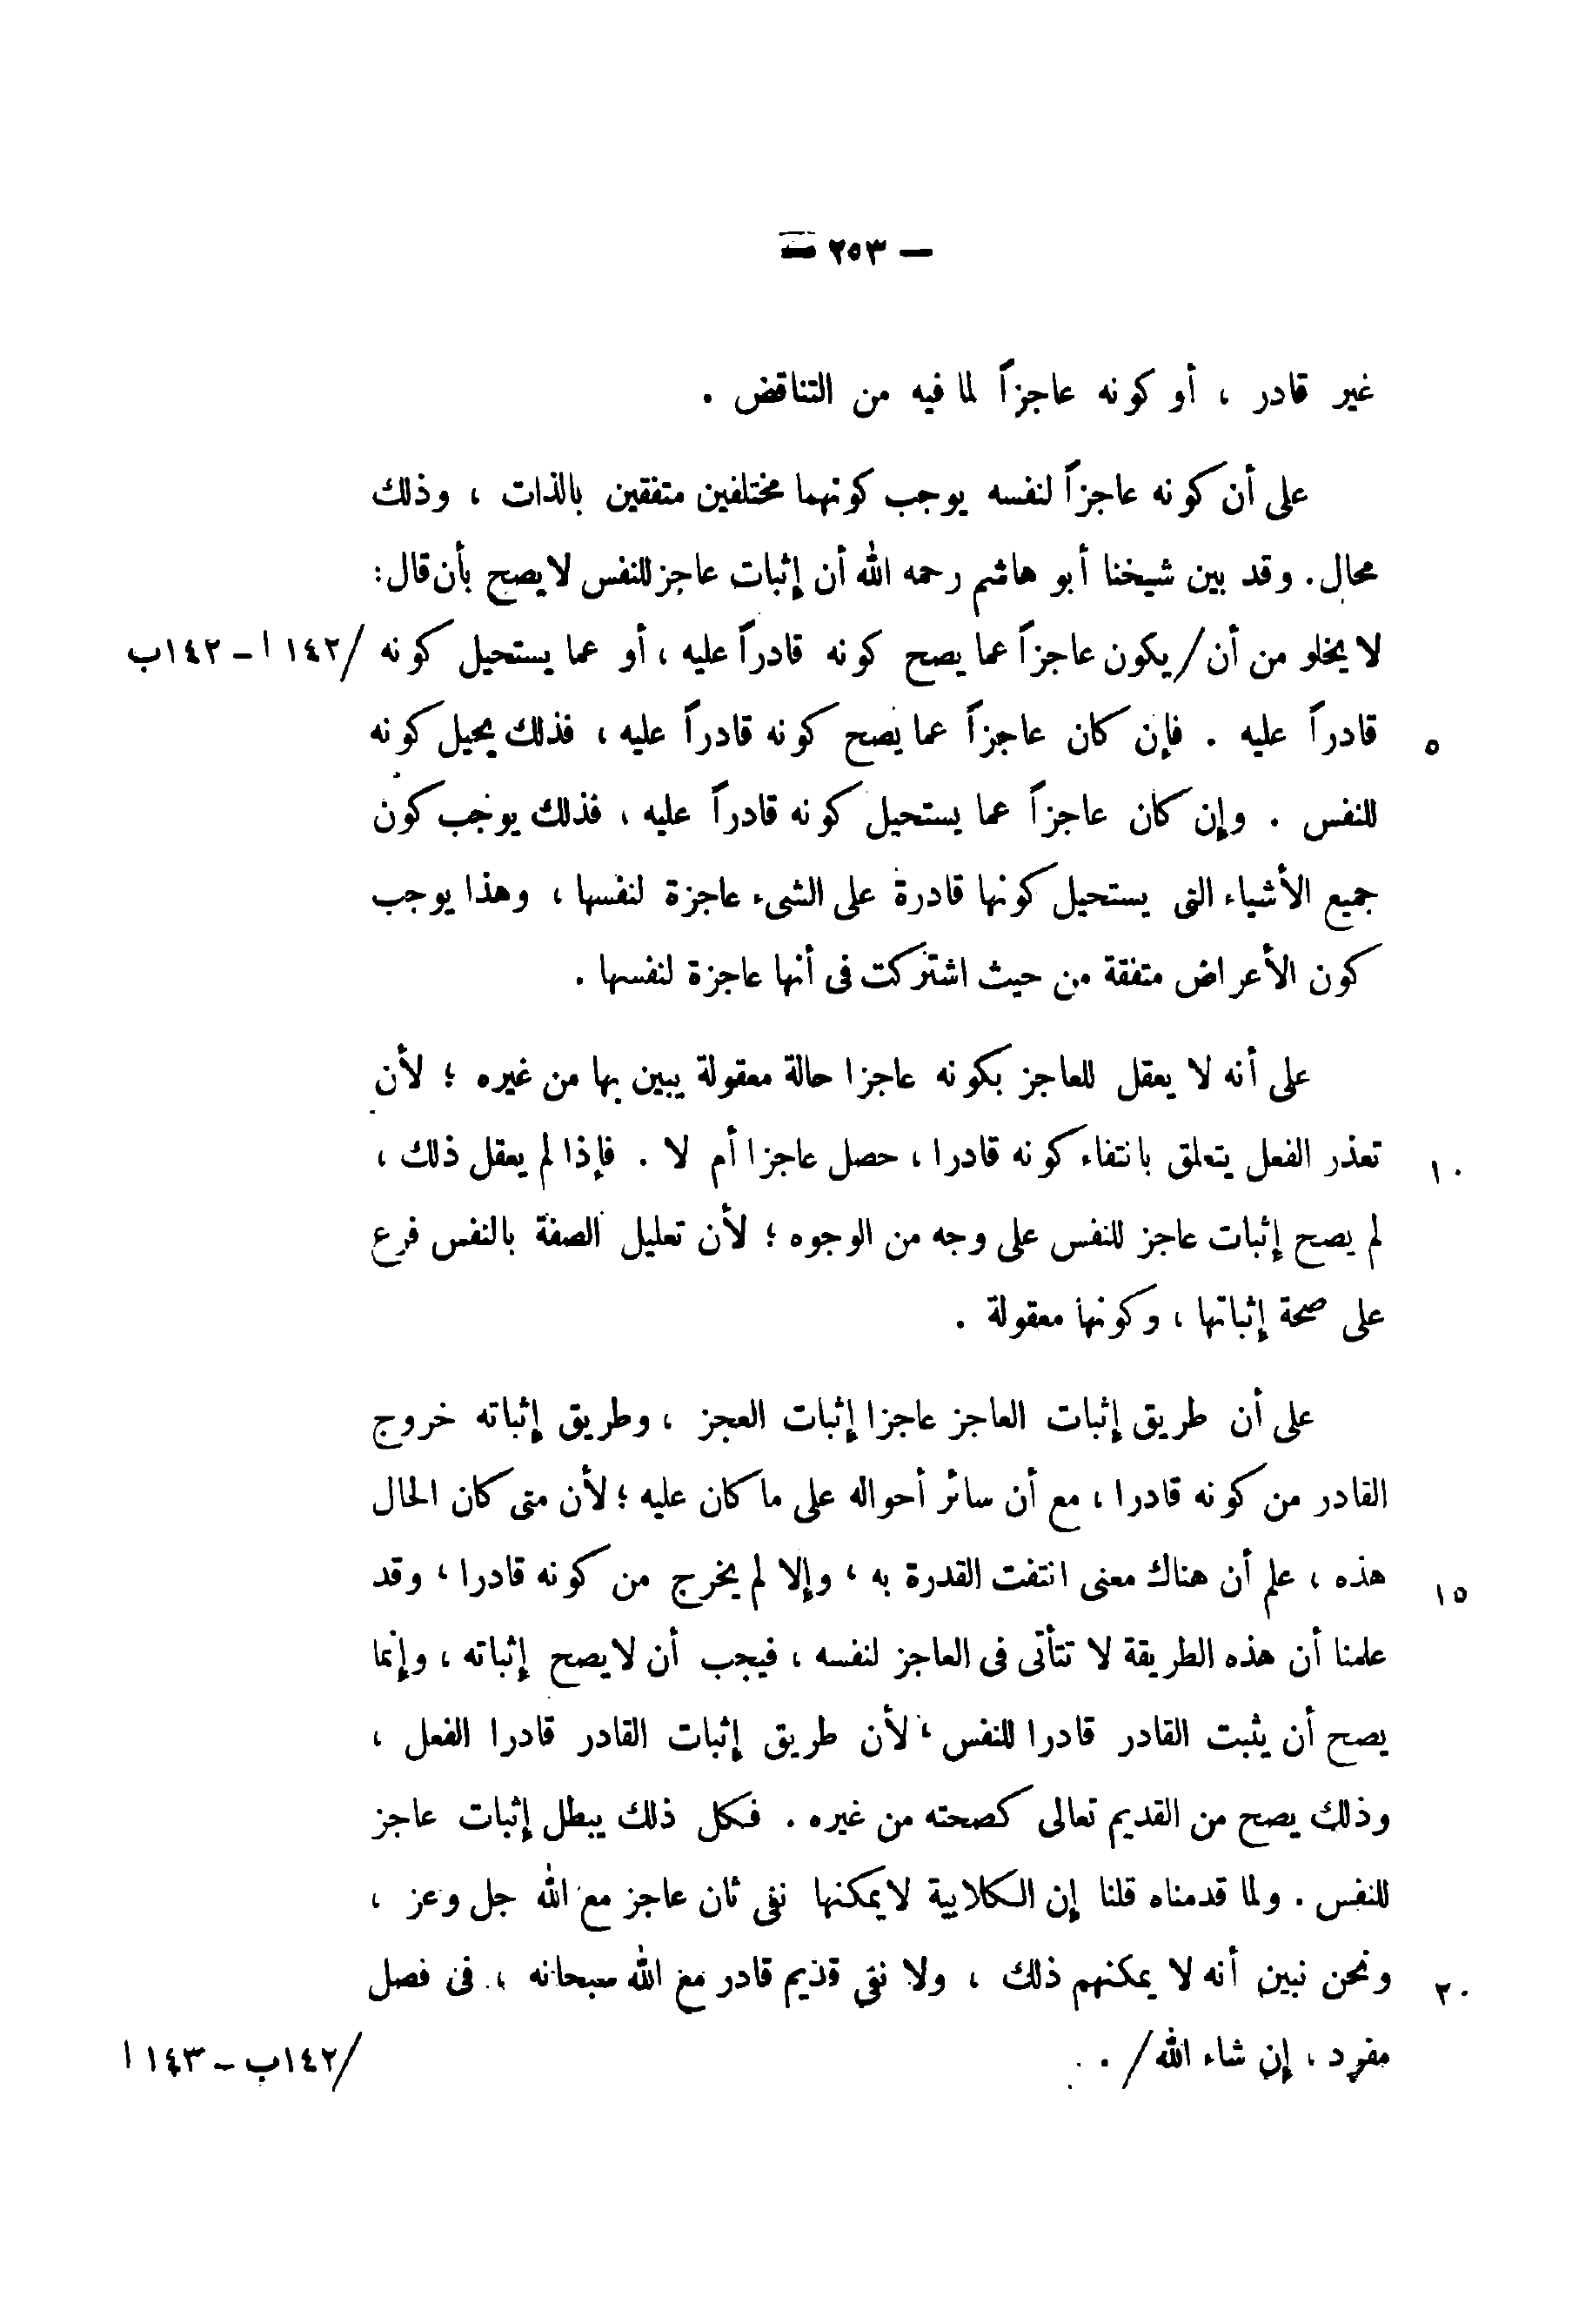 — ٢٥٣ —
غير قادر ، أو كونه عاجزاً لما فيه من التناقض .
على أن كونه عاجزاً لنفسه يوجب كونهما مختلفين متفقين بالذات ، وذلك
محال . وقد بين شيخنا أبو هاشم رحمه الله أن إثبات عاجز للنفس لا يصح بأن قال :
لا يخلو من أن / يكون عاجزاً عما يصح كونه قادراً عليه ، أو عما يستحيل كونه /١٤٢ ا – ١٤٢ب
قادراً عليه . فإن كان عاجزاً عما يصح كونه قادراً عليه ، فذلك يحيل كونه ٥
للنفس . وإن كان عاجزاً عما يستحيل كونه قادراً عليه ، فذلك يوجب كون
جميع الأشياء التى يستحيل كونها قادرة على الشىء عاجزة لنفسها ، وهذا يوجب
كون الأعراض متفقة من حيث اشتركت فى أنها عاجزة لنفسها .
على أنه لا يعقل للعاجز بكونه عاجزا حالة معقولة يبين بها من غيره ؛ لأن
تعذر الفعل يتعلق بانتفاء كونه قادرا ، حصل عاجزا أم لا . فإذا لم يعقل ذلك ، ١٠
لم يصح إثبات عاجز للنفس على وجه من الوجوه ؛ لأن تعليل الصفة بالنفس فرع
على صحة إثباتها ، وكونها معقولة .
على أن طريق إثبات العاجز عاجزا إثبات العجز ، وطريق إثباته خروج
القادر من كونه قادرا ، مع أن سائر أحواله على ما كان عليه ؛ لأن متى كان الحال
هذه ، علم أن هناك معنى انتفت القدرة به ، وإلا لم يخرج من كونه قادرا ، وقد ١٥
علمنا أن هذه الطريقة لا تتأتى فى العاجز لنفسه ، فيجب أن لا يصح إثباته ، وإنما
يصح أن يثبت القادر قادرا للنفس ، لأن طريق إثبات القادر قادرا الفعل ،
وذلك يصح من القديم تعالى كصحته من غيره . فكل ذلك يبطل إثبات عاجز
للنفس . ولما قدمناه قلنا إن الكلابية لا يمكنها نفى ثان عاجز مع الله جل وعز ،
ونحن نبين أنه لا يمكنهم ذلك ، ولا نفى قديم قادر مع الله سبحانه ، فى فصل ٢٠
مفرد ، إن شاء الله / . /١٤٢ب – ١٤٣ ا